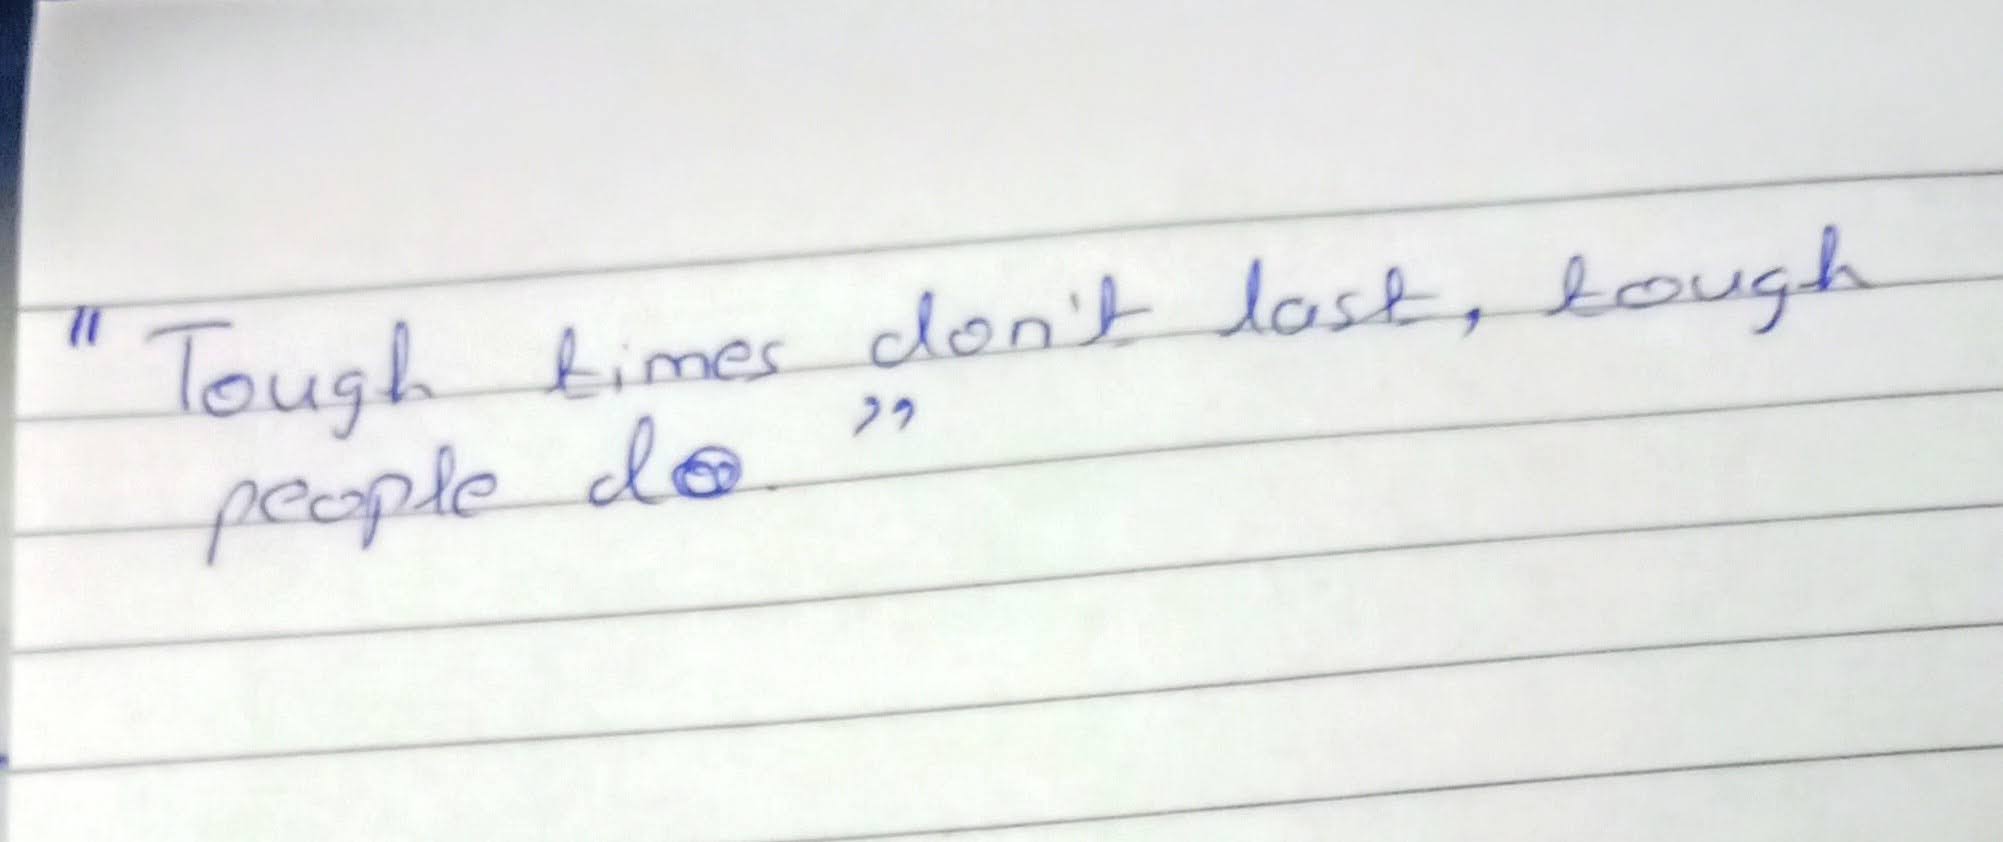 "Tough times don't last, tough
people do."